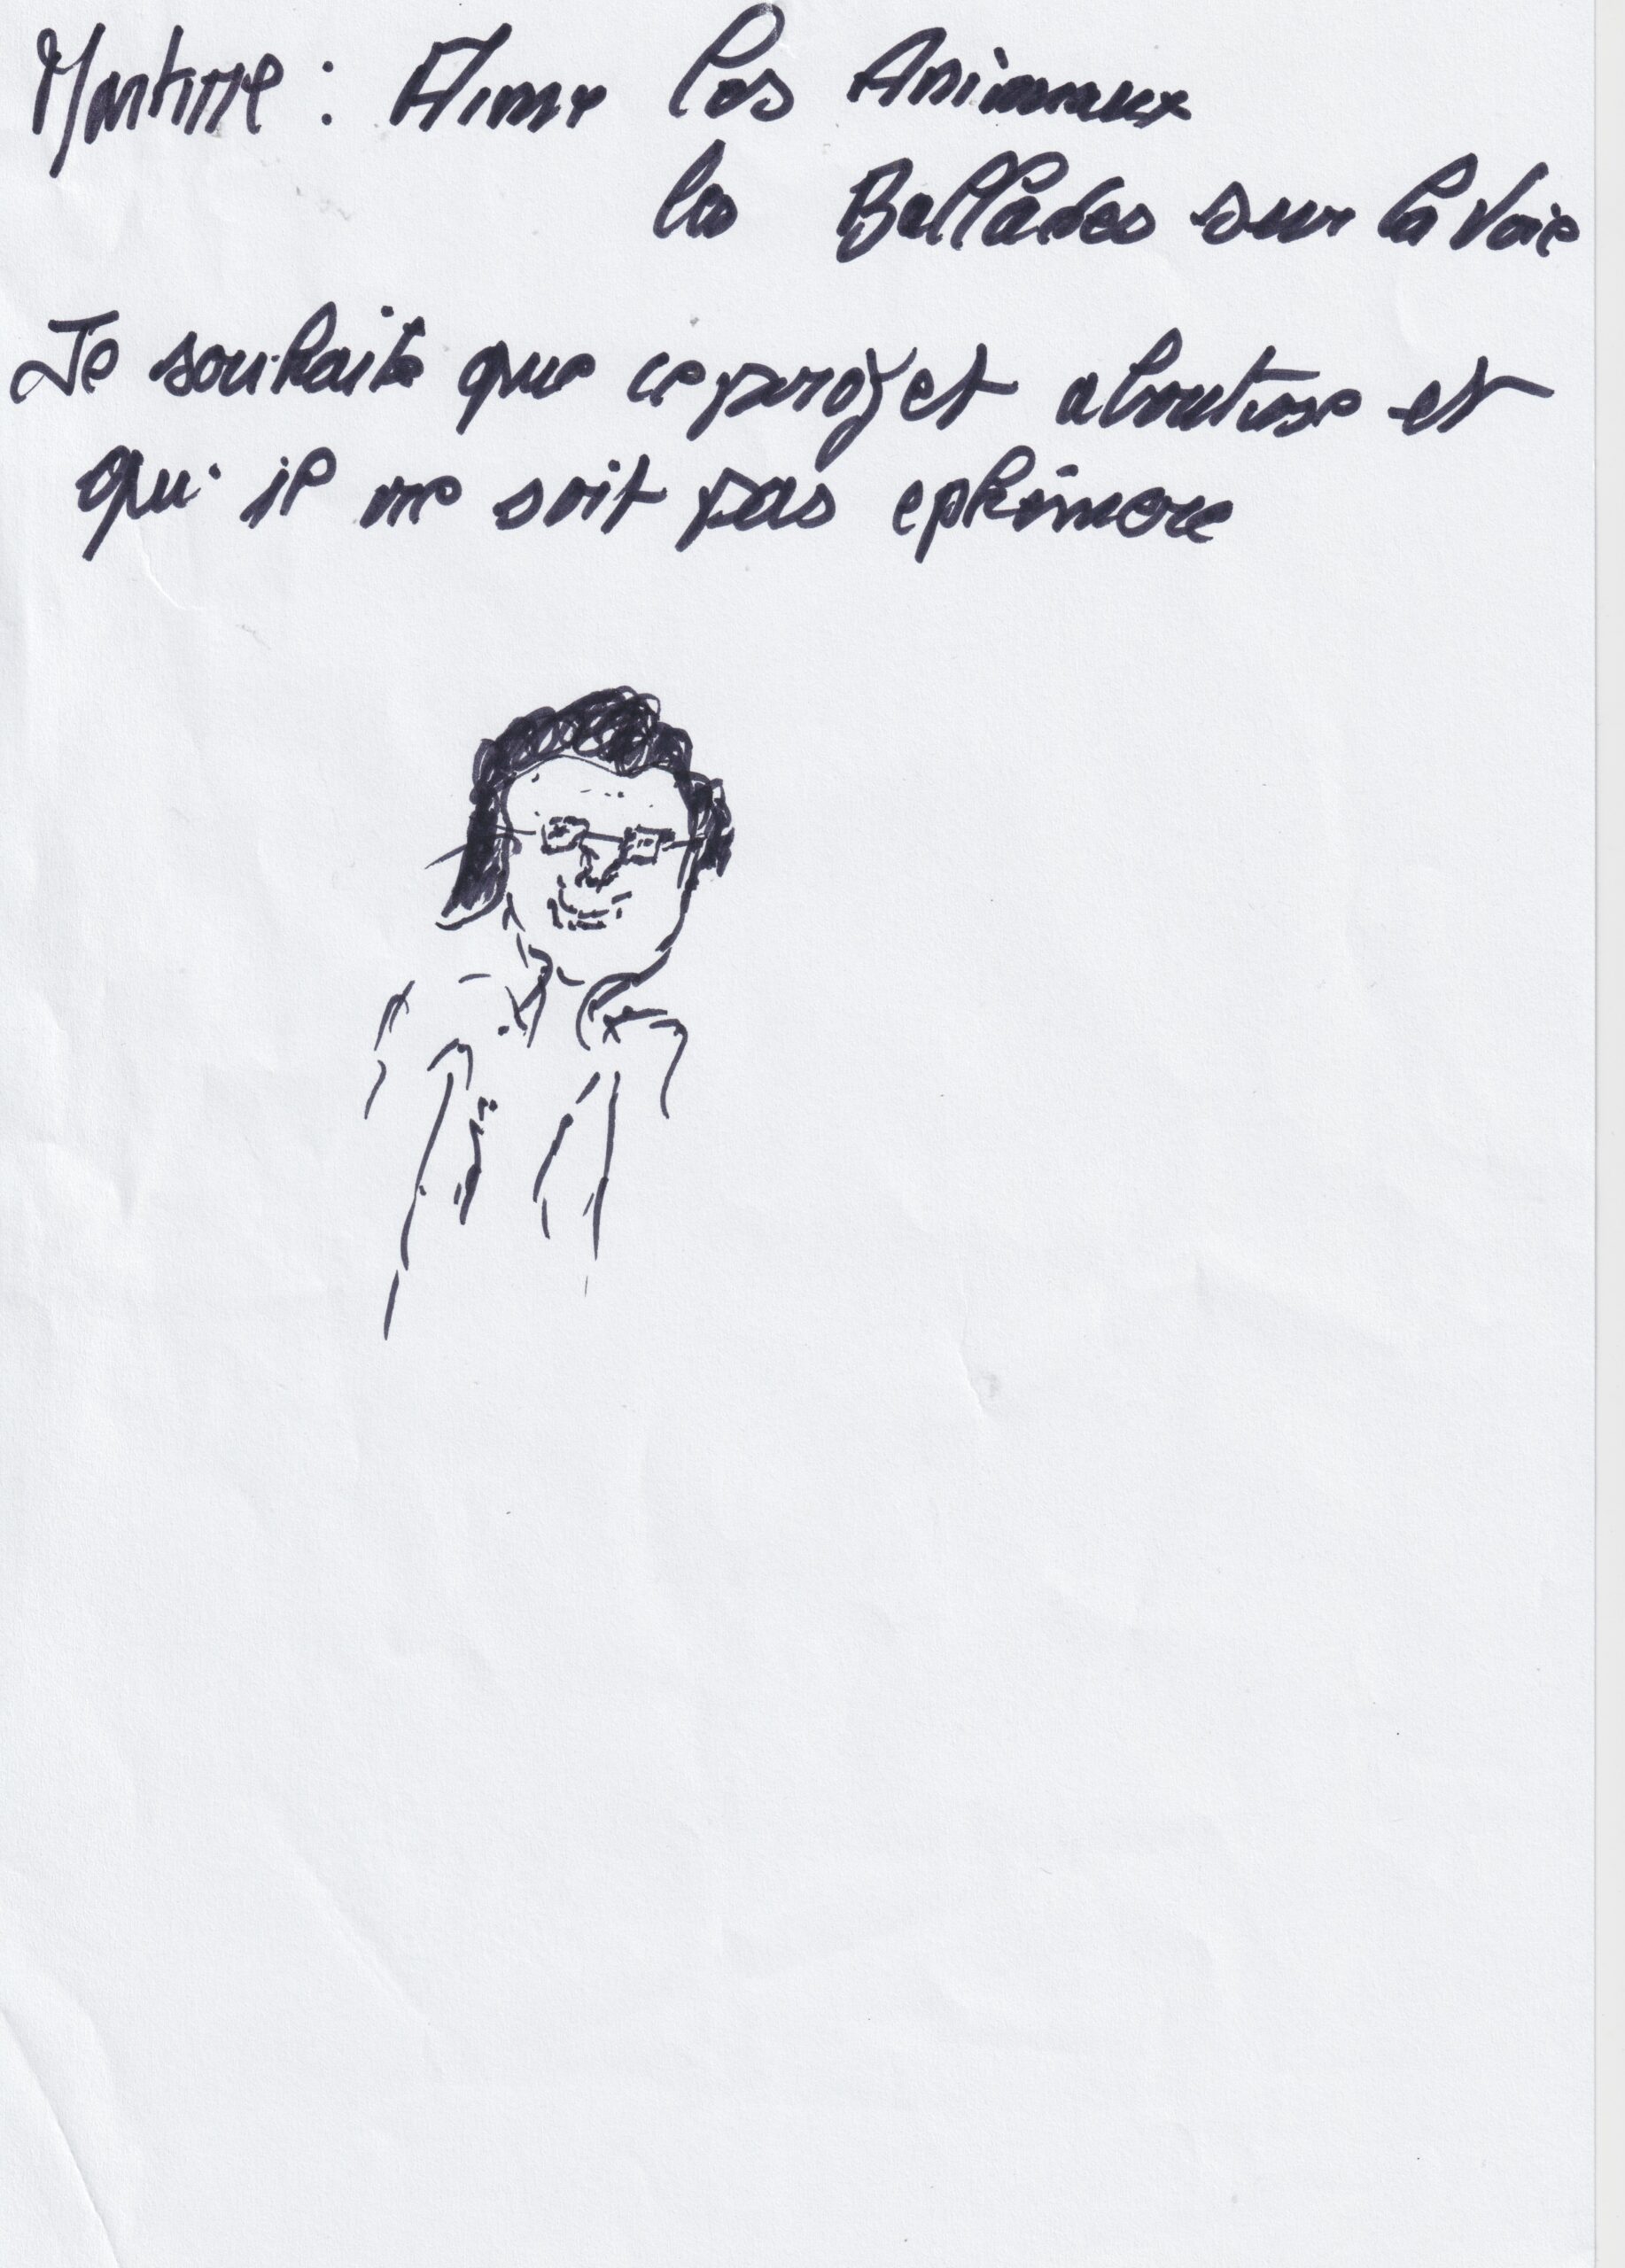 Martine : Aime les Animaux
les Ballades sur la Voie
Je souhaite que ce projet aboutisse et
qu'il ne soit pas ephémère